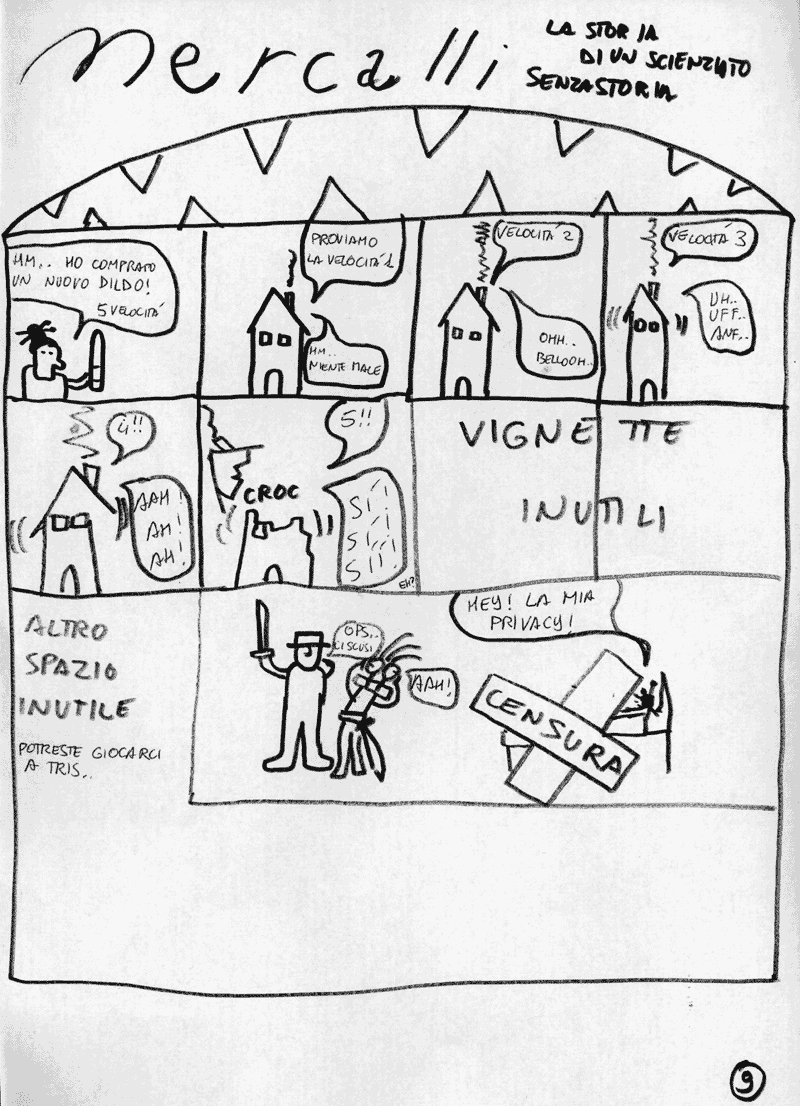 Mercalli
LA STORIA
DI UN SCIENZIATO
SENZASTORIA
HM.. HO COMPRATO
UN NUOVO DILDO!
5 VELOCITÀ
PROVIAMO
LA VELOCITÀ 1
HM..
NIENTE MALE
VELOCITÀ 2
OHH..
BELLOOH..
VELOCITÀ 3
UH..
UFF..
ANF..
4!!
AAH!
AH!
AH!
5!!
CROC
SÌ!
SÌ!!
SÌ!!!
EH?
VIGNETTE
INUTILI
ALTRO
SPAZIO
INUTILE
POTRESTE GIOCARCI
A TRIS..
OPS..
CI SCUSI
AAH!
HEY! LA MIA
PRIVACY!
CENSURA
9